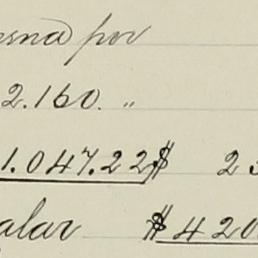 por
2.160. "
1.047.22 $ 23
alar $ 420